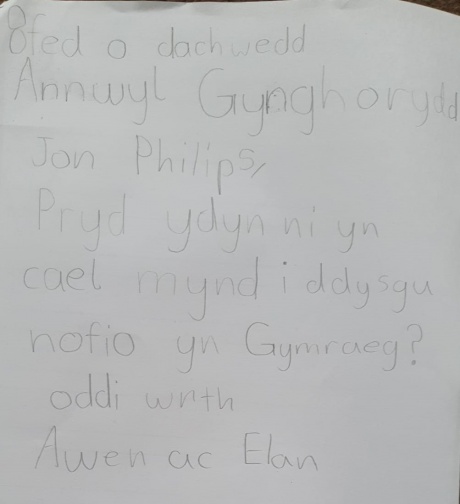 8fed o dachwedd
Annwyl Gynghorydd
Jon Philips,
Pryd ydyn ni yn
cael mynd i ddysgu
nofio yn Gymraeg?
oddi wrth
Awen ac Elan